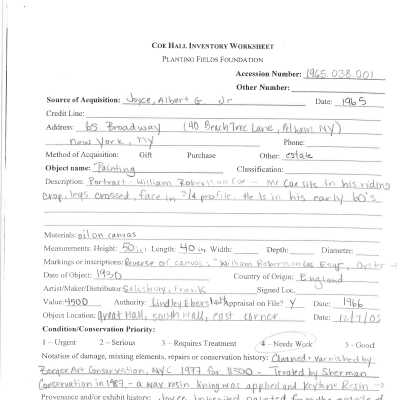 COE HALL INVENTORY WORKSHEET
PLANTING FIELDS FOUNDATION
Accession Number: 1965.038.001
Other Number:
Source of Acquisition: Joyce, Albert G Jr Date: 1965
Credit Line:
Address: 65 Broadway (40 BeachTree Lane, Pelham NY)
New York, NY Phone:
Method of Acquisition: Gift Purchase Other: estate
Object name: Painting Classification:
Description: Portrait - William Robertson Coe - Mr Coe sits in his riding
crop, legs crossed, face in 3/4 profile. He is in his early 60's.
Materials: oil on canvas
Measurements: Height: 50in Length: 40in Width: Depth: Diameter:
Markings or inscriptions: Reverse of canvas: "William Robertson Coe Esqr, Oyster
Date of Object: 1930 Country of Origin: England
Artist/Maker/Distributor Salisbury, Frank Signed Loc.
Value: 4500 Authority: Lindley Eberstadt Appraisal on File? Y Date: 1966
Object Location: great Hall, south Hall, east corner Date:
Condition/Conservation Priority:
1 – Urgent 2 – Serious 3 – Requires Treatment 4 – Needs Work 5 – Good
Notation of damage, missing elements, repairs or conservation history: Cleaned + varnished by
Art Conservation, NYC 1977 for $300 - Treated by Sherman
Conservation in 1987 - a wax resin lining was applied and Resin
Provenance and/or exhibit history: Joyce